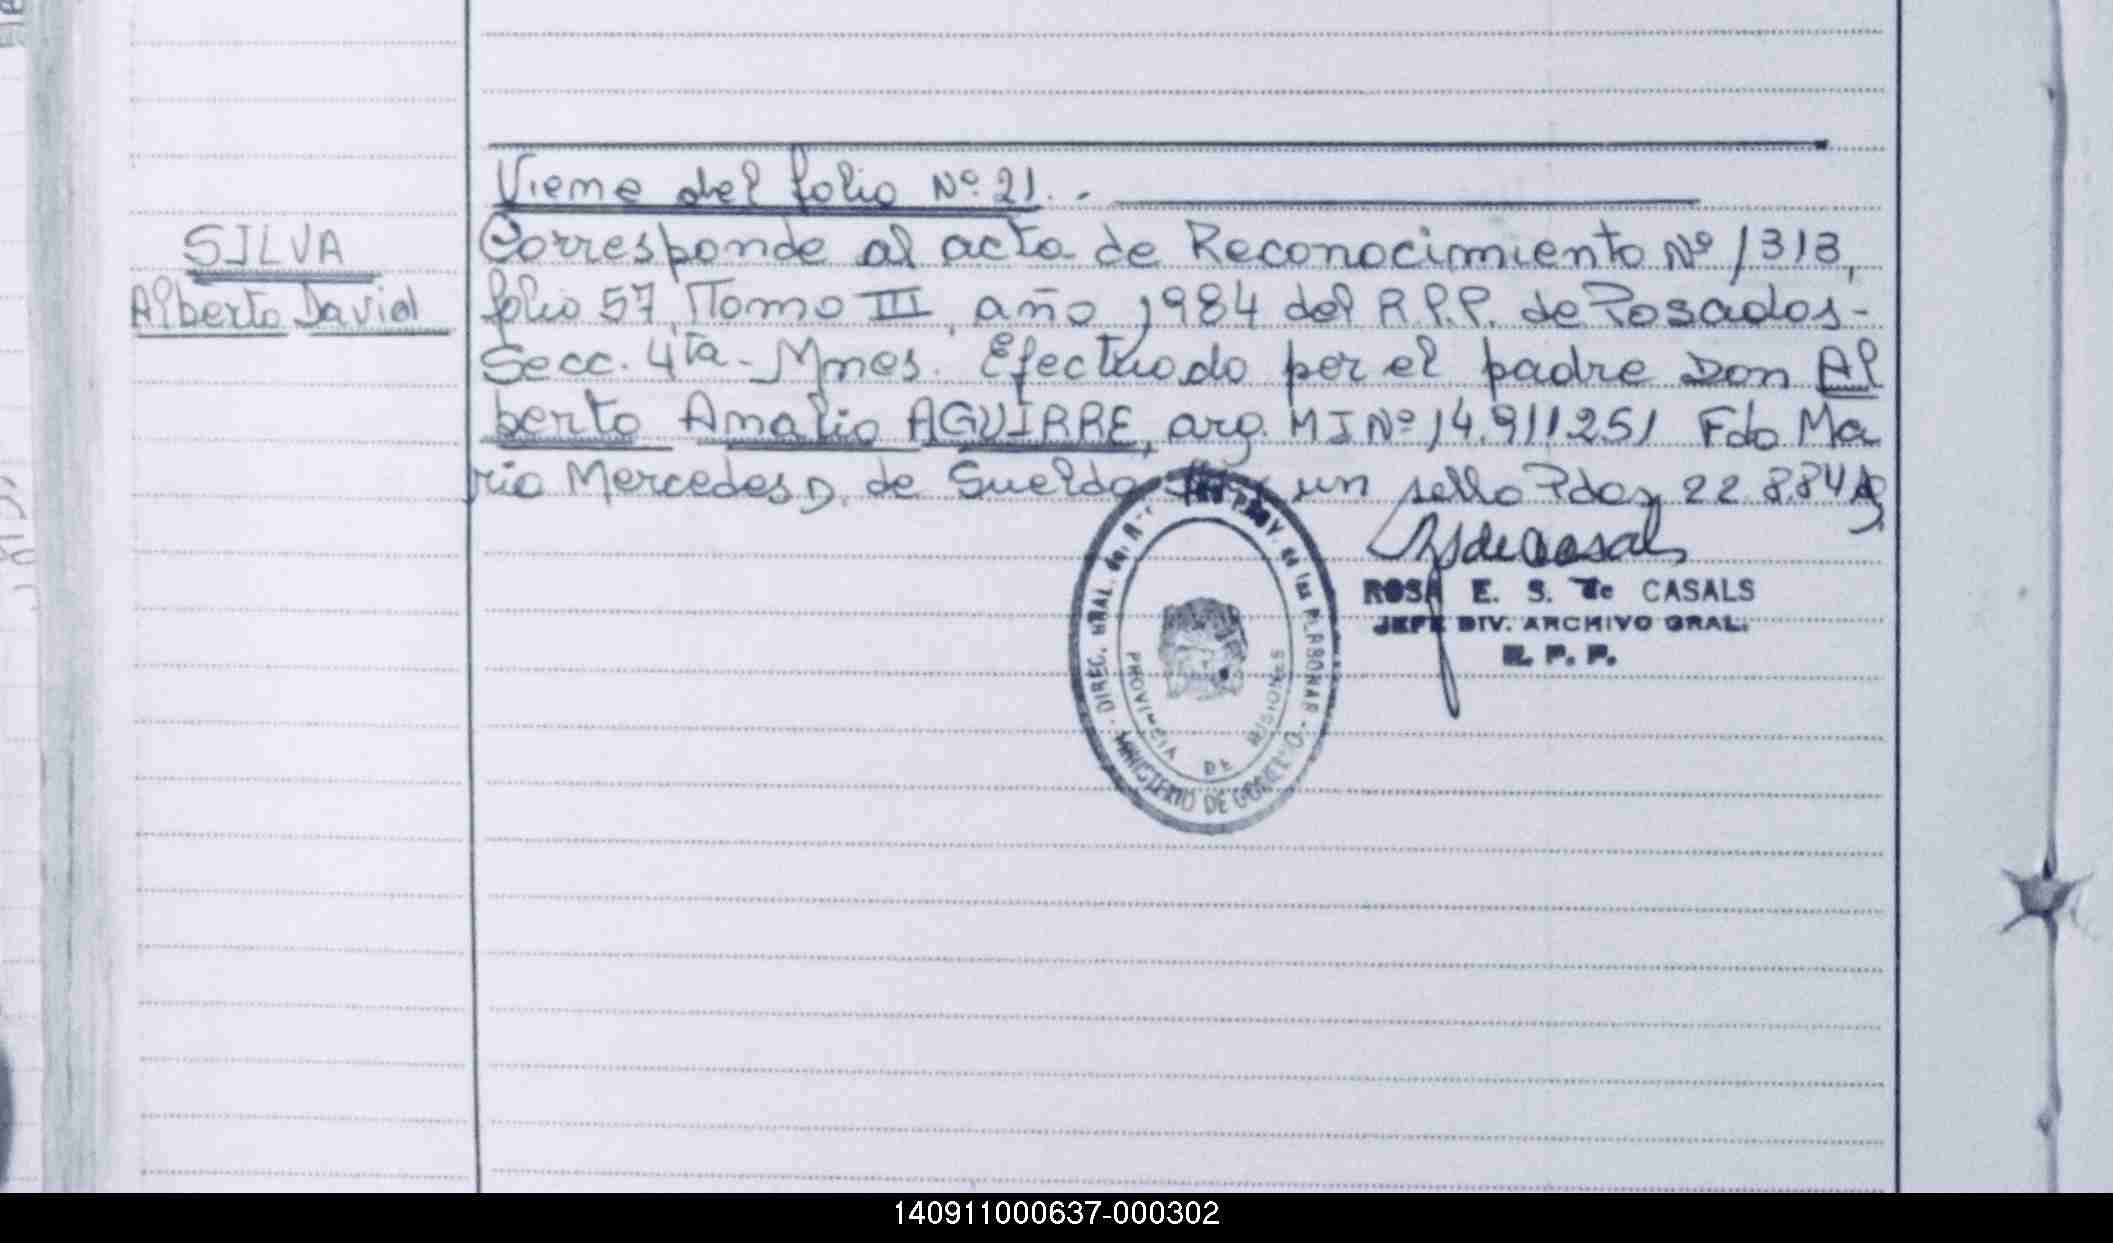 Viene del folio Nº 21. -
SILVA
Alberto David
Corresponde al acta de Reconocimiento Nº 1313,
folio 57, Tomo III, año 1984 del R.P.P. de Posadas-
Secc. 4ta - Mnes. Efectuado por el padre Don Al
berto Amalio AGUIRRE, arg. MI Nº 14.911251 Fdo Ma
ria Mercedes D. de Sueldo un sello Pdas 22.8.84
ROSA E. S. de CASALS
JEFE DIV. ARCHIVO GRAL.
R. P. P.
DIREC. GRAL. del PROV. de las PERSONAS - MINISTERIO DE GOBIERNO -
PROVINCIA DE MISIONES
140911000637-000302